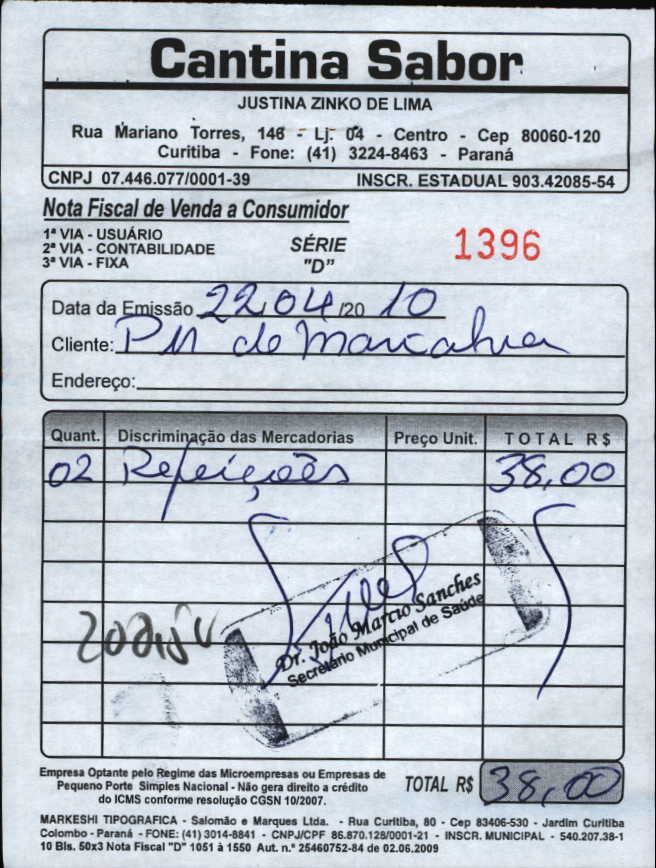 Cantina Sabor
JUSTINA ZINKO DE LIMA
Rua Mariano Torres, 146 - Lj. 04 - Centro - Cep 80060-120
Curitiba - Fone: (41) 3224-8463 - Paraná
CNPJ 07.446.077/0001-39 INSCR. ESTADUAL 903.42085-54
Nota Fiscal de Venda a Consumidor
1ª VIA - USUÁRIO
2ª VIA - CONTABILIDADE
3ª VIA - FIXA
SÉRIE
"D"
1396
Data da Emissão 22.04 /20 10
Cliente: PM de
Endereço:
Quant. Discriminação das Mercadorias Preço Unit. TOTAL R$
02 Refeições 38,00
Dr. João Marcio Sanches
Secretário Municipal de Saúde
Empresa Optante pelo Regime das Microempresas ou Empresas de
Pequeno Porte Simples Nacional - Não gera direito a crédito
do ICMS conforme resolução CGSN 10/2007.
TOTAL R$ 38,00
MARKESHI TIPOGRAFICA - Salomão e Marques Ltda. - Rua Curitiba, 80 - Cep 83406-530 - Jardim Curitiba
Colombo - Paraná - FONE: (41) 3014-8841 - CNPJ/CPF 86.870.128/0001-21 - INSCR. MUNICIPAL - 540.207.38-1
10 Bls. 50x3 Nota Fiscal "D" 1051 à 1550 Aut. n.º 25460752-84 de 02.06.2009